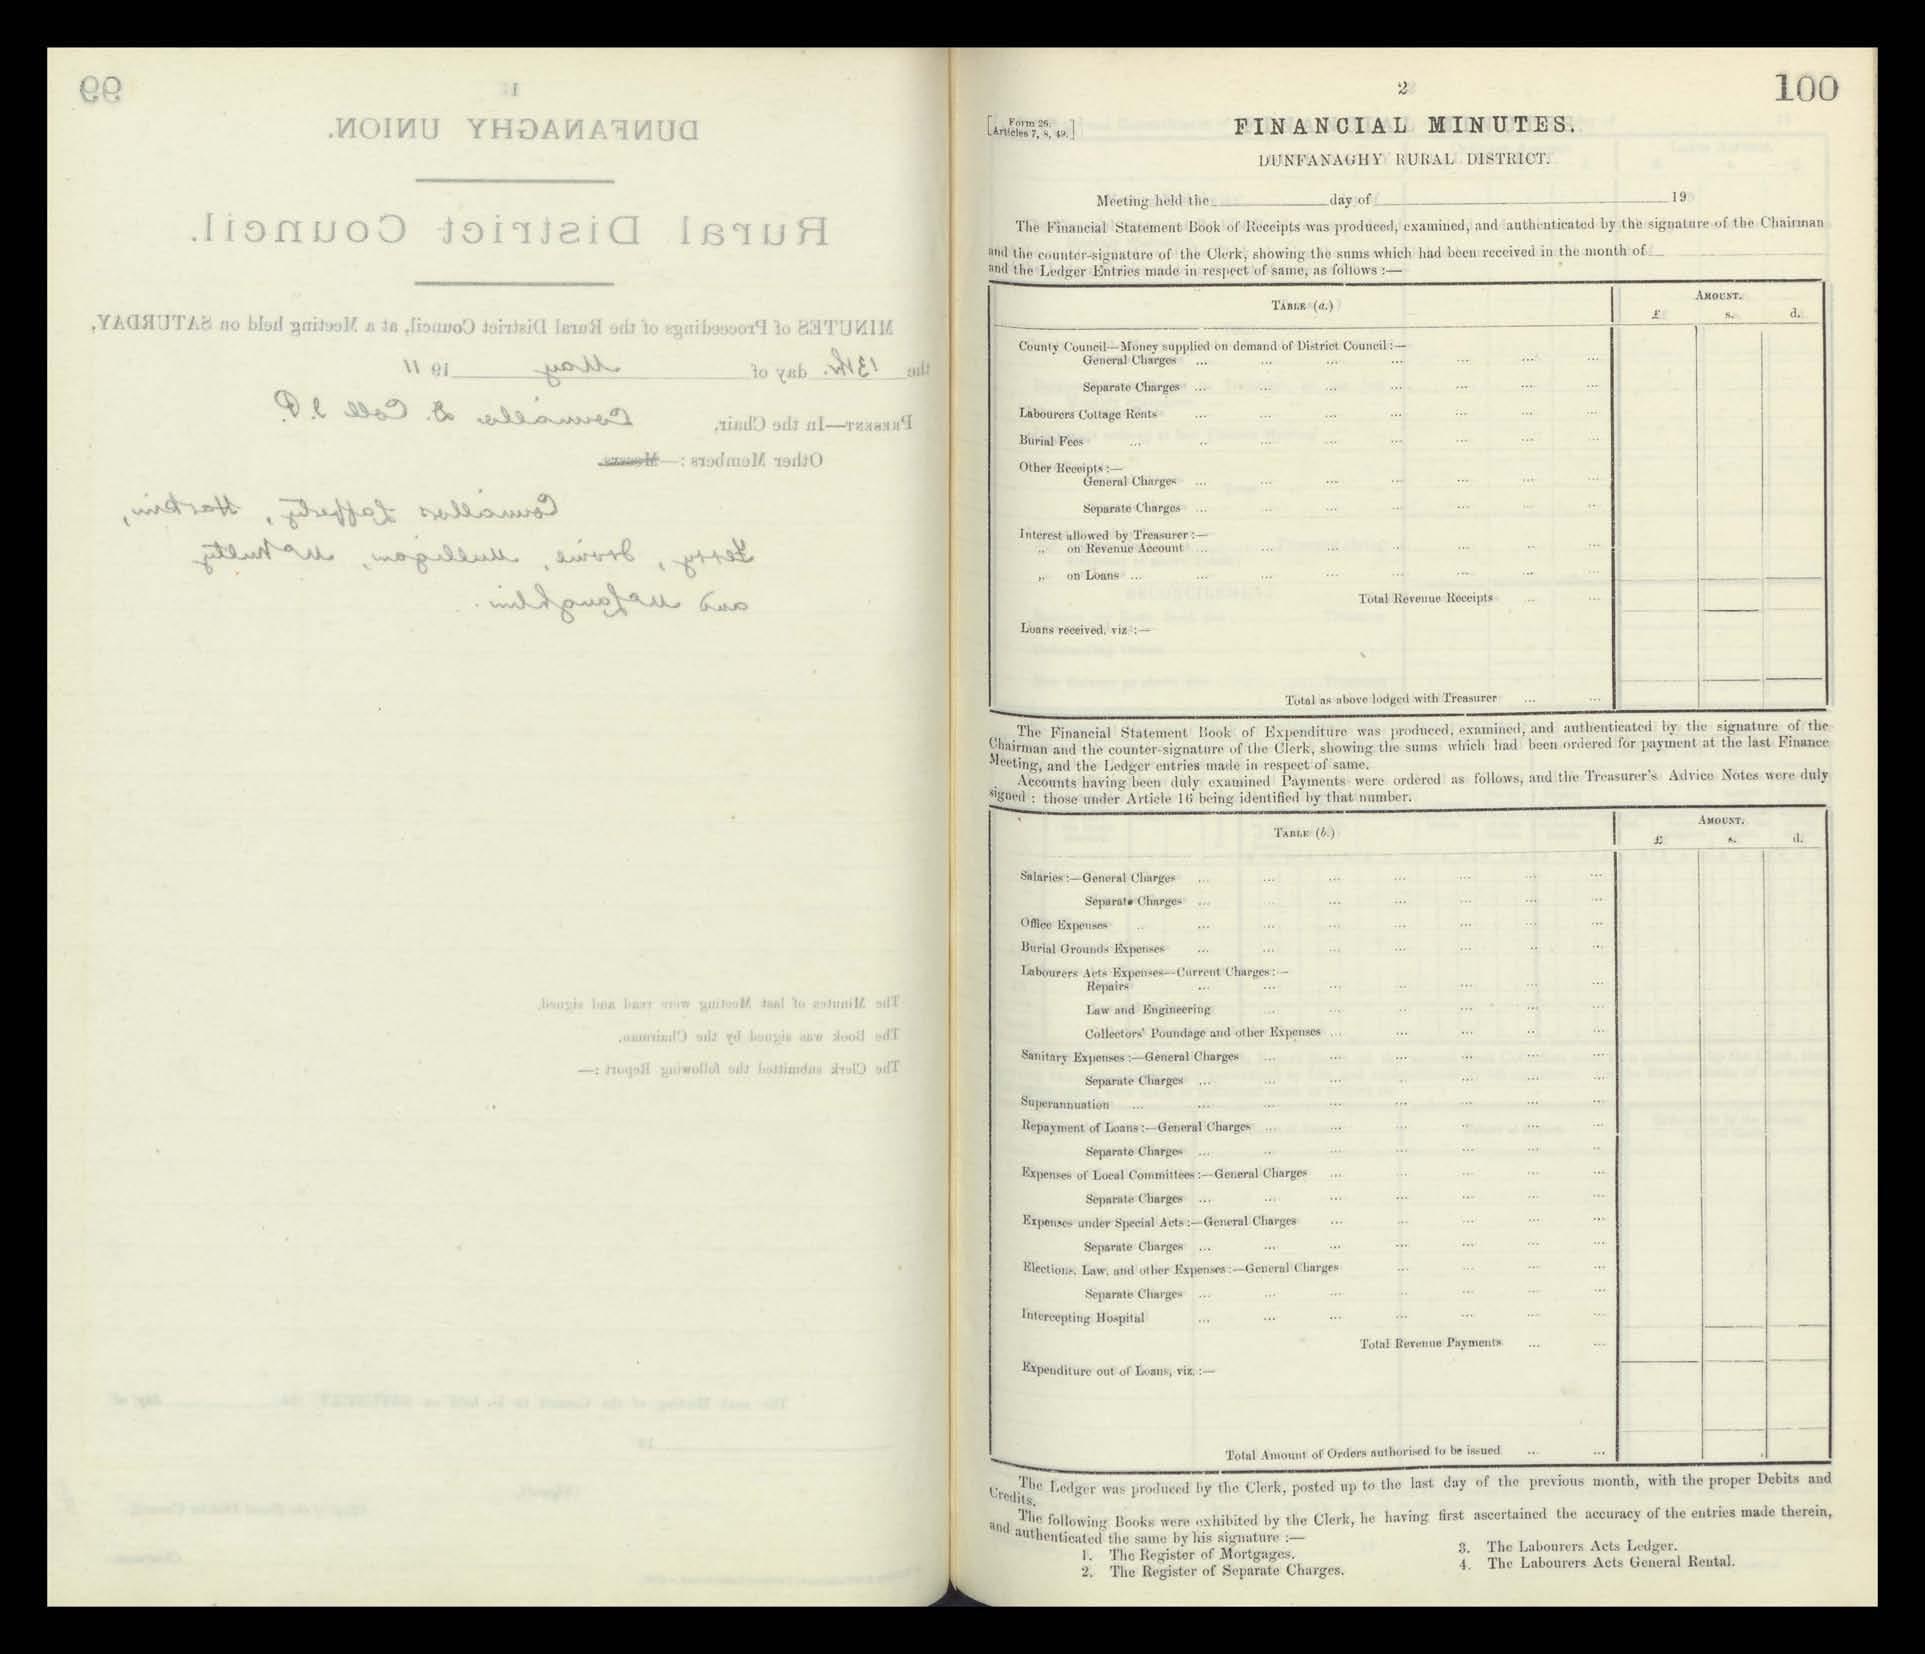 99
1
DUNFANAGHY UNION.
Rural District Council.
MINUTES of Proceedings of the Rural District Council, at a Meeting held on SATURDAY,
the 13th. day of May 19 11
PRESENT—In the Chair, Councillor D. Coll J.P.
Other Members :—Messrs.
Councillors Lafferty, Harkin,
Ferry, Irvine, Mulligan, McNulty
and McLaughlin.
The Minutes of last Meeting were read and signed.
The Book was signed by the Chairman.
The Clerk submitted the following Report :—
100
2
Form 26.
Articles 7, 8, 49.
FINANCIAL MINUTES.
DUNFANAGHY RURAL DISTRICT.
Meeting held the day of 19
The Financial Statement Book of Receipts was produced, examined, and authenticated by the signature of the Chairman
and the counter-signature of the Clerk, showing the sums which had been received in the month of
and the Ledger Entries made in respect of same, as follows :—
TABLE (a.)
AMOUNT.
£ s. d.
County Council—Money supplied on demand of District Council :—
General Charges ... ... ... ... ... ... ...
Separate Charges ... ... ... ... ... ... ...
Labourers Cottage Rents ... ... ... ... ... ... ...
Burial Fees ... ... ... ... ... ... ... ...
Other Receipts :—
General Charges ... ... ... ... ... ... ...
Separate Charges ... ... ... ... ... ... ...
Interest allowed by Treasurer :—
„ on Revenue Account ... ... ... ... ... ... ...
„ on Loans ... ... ... ... ... ... ... ...
Total Revenue Receipts ... ...
Loans received, viz :—
Total as above lodged with Treasurer ... ...
The Financial Statement Book of Expenditure was produced, examined, and authenticated by the signature of the
Chairman and the counter-signature of the Clerk, showing the sums which had been ordered for payment at the last Finance
Meeting, and the Ledger entries made in respect of same.
Accounts having been duly examined Payments were ordered as follows, and the Treasurer's Advice Notes were duly
signed : those under Article 16 being identified by that number.
TABLE (b.)
AMOUNT.
£ s. d.
Salaries :—General Charges ... ... ... ... ... ... ...
Separate Charges ... ... ... ... ... ... ...
Office Expenses ... ... ... ... ... ... ... ...
Burial Grounds Expenses ... ... ... ... ... ... ...
Labourers Acts Expenses—Current Charges :—
Repairs ... ... ... ... ... ... ...
Law and Engineering ... ... ... ... ... ...
Collectors' Poundage and other Expenses ... ... ... ... ...
Sanitary Expenses :—General Charges ... ... ... ... ... ...
Separate Charges ... ... ... ... ... ... ...
Superannuation ... ... ... ... ... ... ... ...
Repayment of Loans :—General Charges ... ... ... ... ... ...
Separate Charges ... ... ... ... ... ... ...
Expenses of Local Committees :—General Charges ... ... ... ... ...
Separate Charges ... ... ... ... ... ... ...
Expenses under Special Acts :—General Charges ... ... ... ... ...
Separate Charges ... ... ... ... ... ... ...
Elections, Law, and other Expenses :—General Charges ... ... ... ...
Separate Charges ... ... ... ... ... ... ...
Intercepting Hospital ... ... ... ... ... ... ...
Total Revenue Payments ... ...
Expenditure out of Loans, viz. :—
Total Amount of Orders authorised to be issued ... ...
The Ledger was produced by the Clerk, posted up to the last day of the previous month, with the proper Debits and
Credits.
The following Books were exhibited by the Clerk, he having first ascertained the accuracy of the entries made therein,
and authenticated the same by his signature :—
1. The Register of Mortgages.
2. The Register of Separate Charges.
3. The Labourers Acts Ledger.
4. The Labourers Acts General Rental.